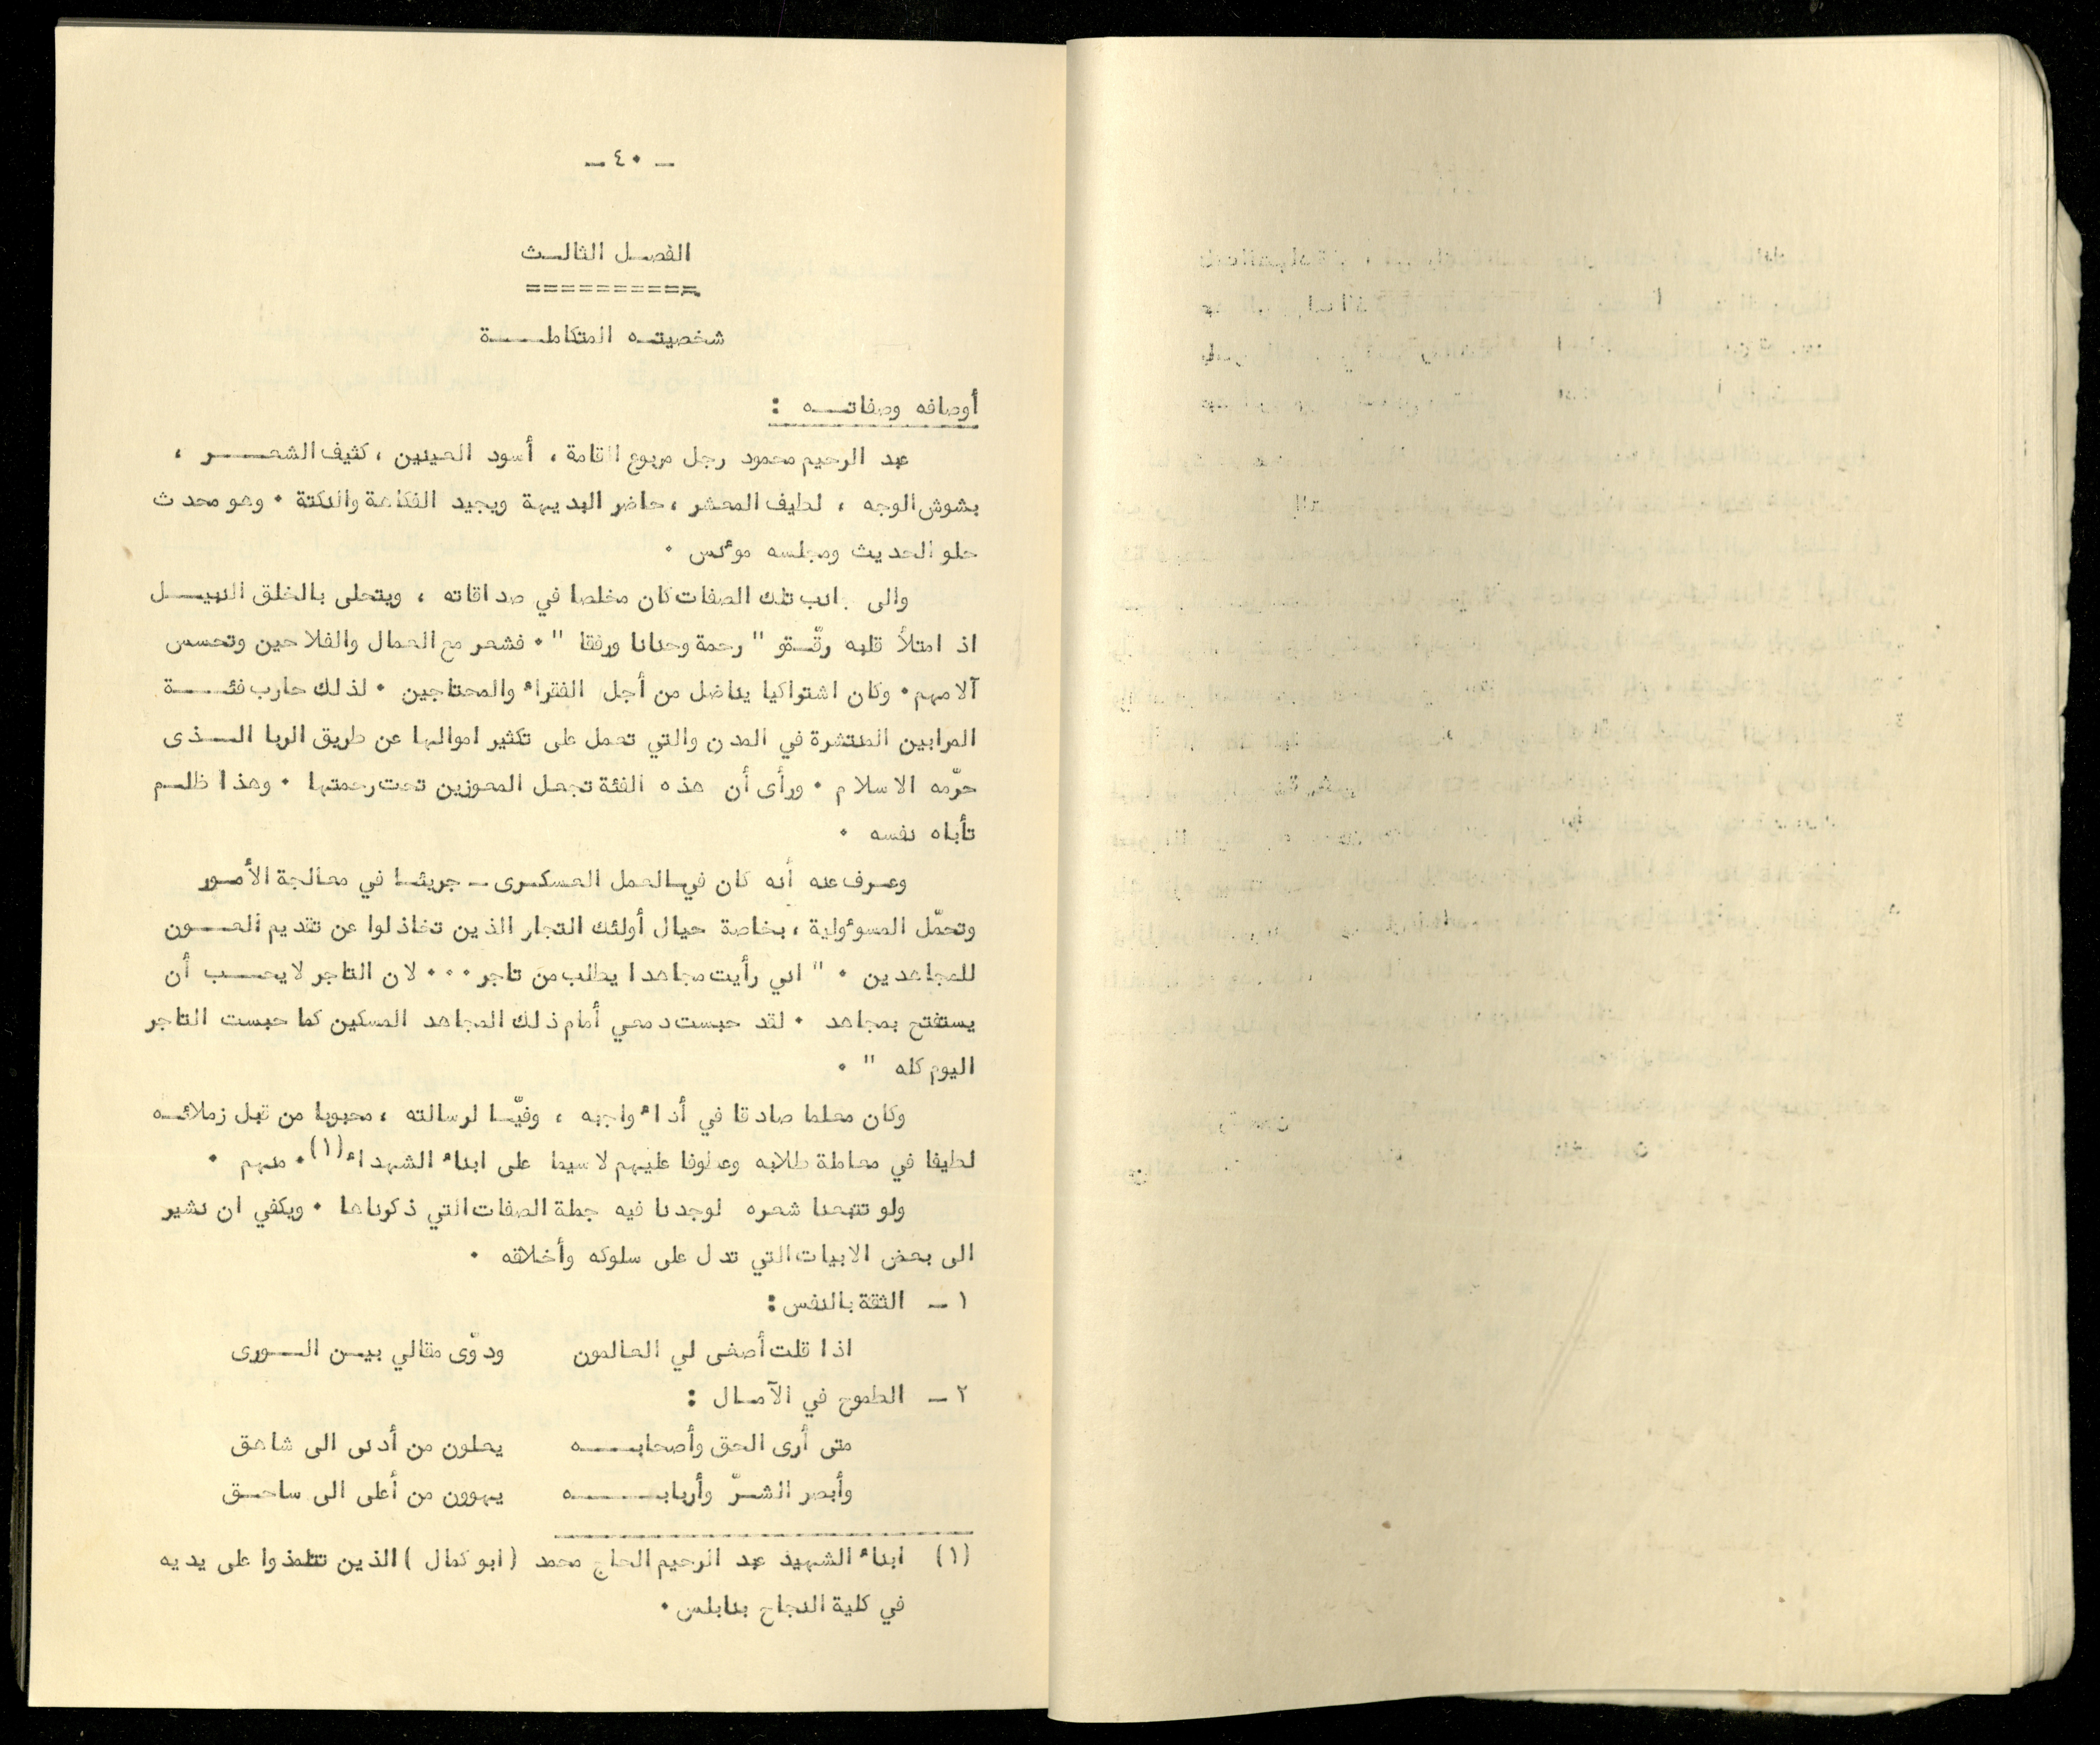 - ٤٠ -
الفصل الثالث
==========
شخصيته المتكاملة
أوصافه وصفاته :
عبد الرحيم محمود رجل مربوع القامة ، أسود العينين ، كثيف الشعر ،
بشوش الوجه ، لطيف المعشر ، حاضر البديهة ويجيد الفكاهة والنكتة . وهو محدث
حلو الحديث ومجلسه موئنس .
والى جانب تلك الصفات كان مخلصا في صداقاته ، ويتحلى بالخلق النبيل
اذ امتلأ قلبه رقّة و " رحمة وحنانا ورفقا " . فشعر مع العمال والفلاحين وتحسس
آلامهم . وكان اشتراكيا يناضل من أجل الفقراء والمحتاجين . لذلك حارب فئة
المرابين المنتشرة في المدن والتي تعمل على تكثير اموالها عن طريق الربا الذى
حرّمه الاسلام . ورأى أن هذه الفئة تجعل المعوزين تحت رحمتها . وهذا ظلم
تأباه نفسه .
وعرف عنه أنه كان في العمل العسكرى - جريئا في معالجة الأمور
وتحمّل المسوءولية ، بخاصة حيال أولئك التجار الذين تخاذلوا عن تقديم العون
للمجاهدين . " اني رأيت مجاهدا يطلب من تاجر ... لان التاجر لا يحب أن
يستفتح بمجاهد . لقد حبست دمعي أمام ذلك المجاهد المسكين كما حبست التاجر
اليوم كله " .
وكان معلما صادقا في أداء واجبه ، وفيّا لرسالته ، محبوبا من قبل زملائه
لطيفا في معاملة طلابه وعطوفا عليهم لا سيما على ابناء الشهداء (١) . منهم .
ولو تتبعنا شعره لوجدنا فيه جملة الصفات التي ذكرناها . ويكفي ان نشير
الى بعض الابيات التي تدل على سلوكه وأخلاقه .
١ - الثقة بالنفس :
اذا قلت أصغى لي العالمون ودوّى مقالي بين الورى
٢ - الطموح في الآمال :
متى أرى الحق وأصحابه يعلون من أدنى الى شاهق
وأبصر الشرّ وأربابه يهوون من أعلى الى ساحق
(١) ابناء الشهيد عبد الرحيم الحاج محمد ( ابو كمال ) الذين تتلمذوا على يديه
في كلية النجاح بنابلس .